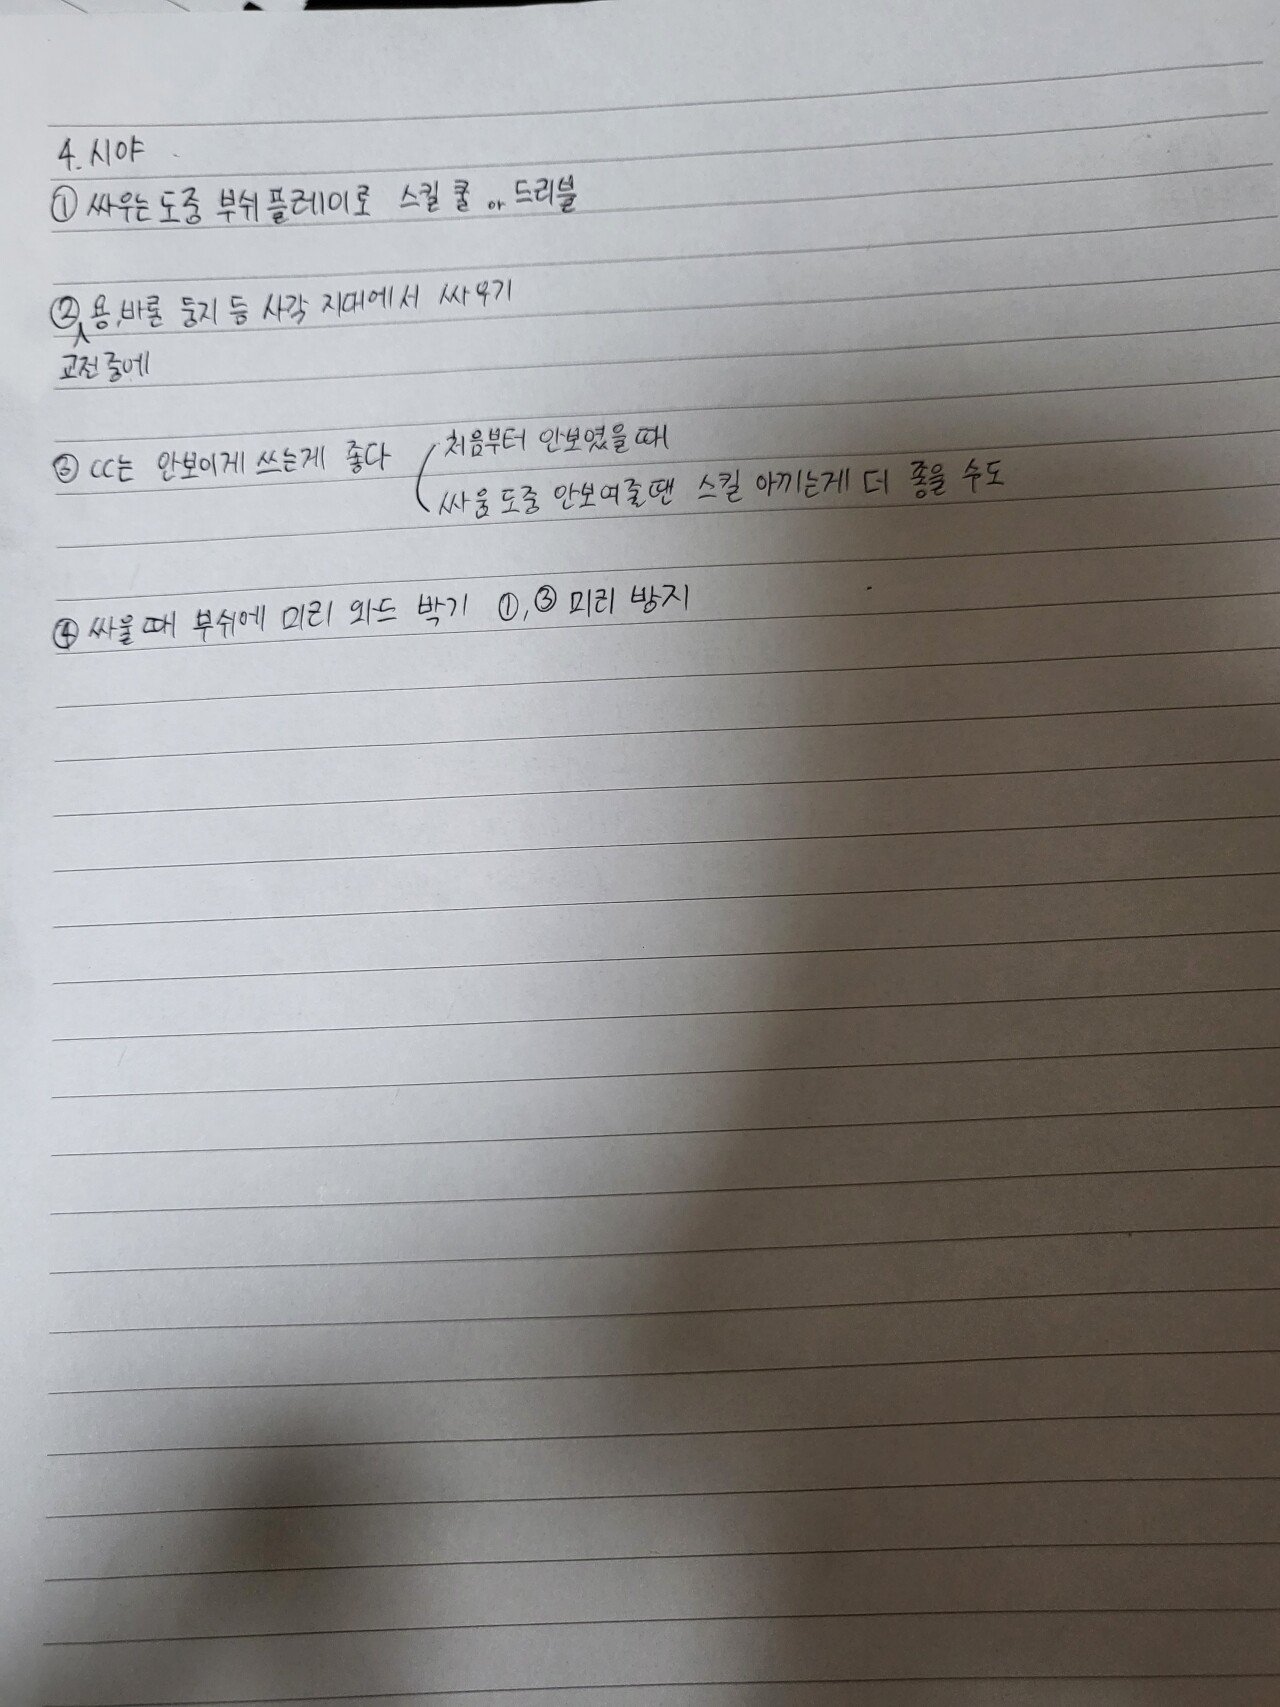 4. 시야
① 싸우는 도중 부쉬 플레이로 스킬 쿨 or 드리블
② 용, 바론 둥지 등 사각 지대에서 싸우기
교전 중에
③ CC는 안보이게 쓰는게 좋다
처음부터 안보였을 때
싸움 도중 안보여줄땐 스킬 아끼는게 더 좋을 수도
④ 싸울 때 부쉬에 미리 와드 박기 ①, ③ 미리 방지